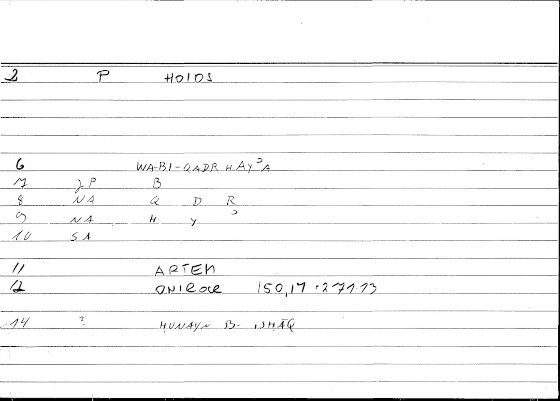 2 P HOLOS
6 WA-BI-QADR HAYʾA
7 JP B
8 NA Q D R
9 NA H Y ʾ
10 SA
11 ARTEM
12 ONIROCR 150,17 271.13
14 ? HUNAYN B. ISHĀQ